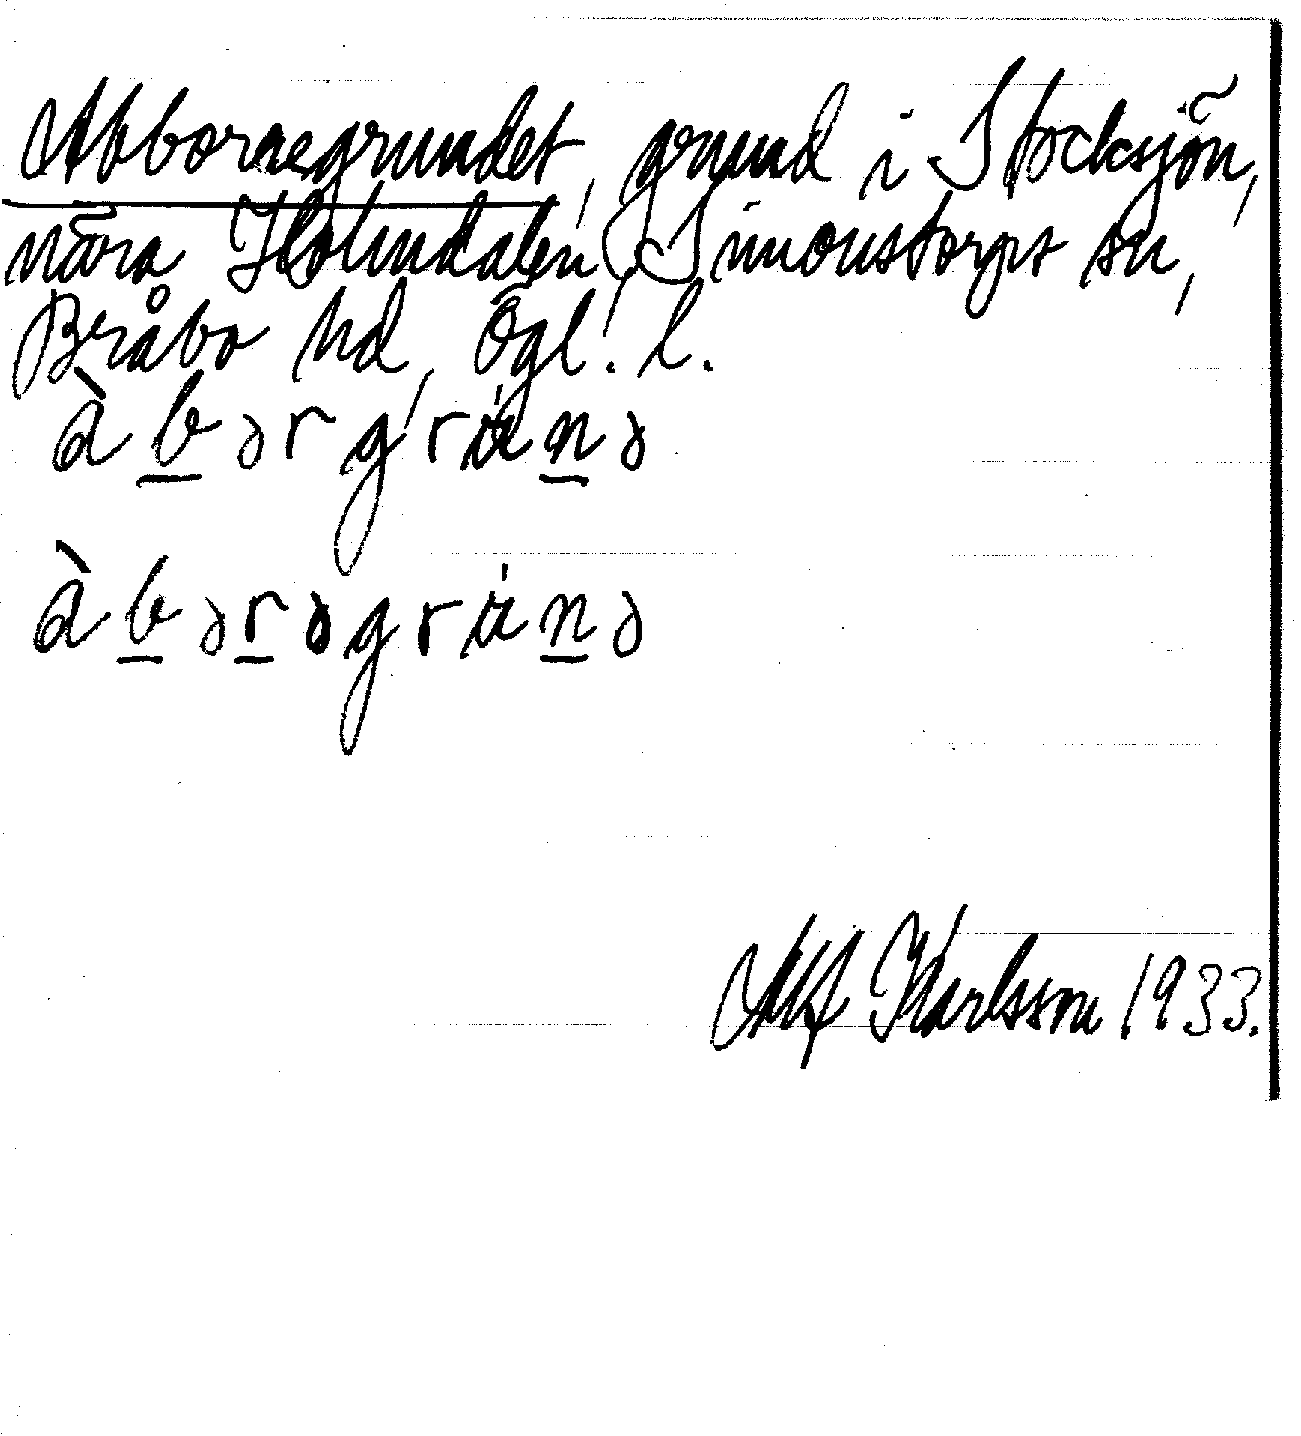 Abborregrundet, grund i Stocksjön,
nära Holmdalen, Simonstorps sn,
Bråbo hd, Ögl. l.
àb̲ərgrùn̲ə
àb̲ər̲əgrùn̲ə
Alf Karlsson 1933.